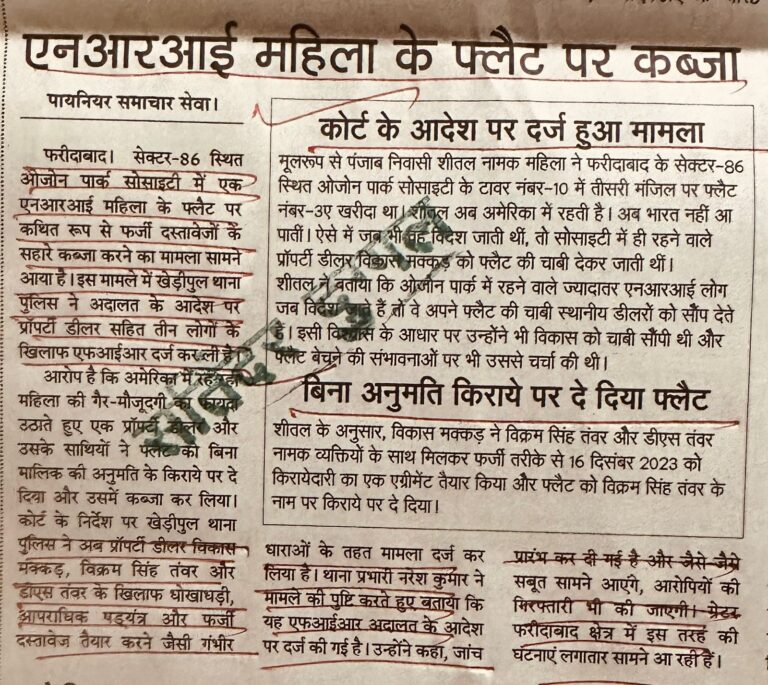 एनआरआई महिला के फ्लैट पर कब्जा
पायनियर समाचार सेवा।
फरीदाबाद। सेक्टर-86 स्थित
ओजोन पार्क सोसाइटी में एक
एनआरआई महिला के फ्लैट पर
कथित रूप से फर्जी दस्तावेजों के
सहारे कब्जा करने का मामला सामने
आया है। इस मामले में खेड़ीपुल थाना
पुलिस ने अदालत के आदेश पर
प्रॉपर्टी डीलर सहित तीन लोगों के
खिलाफ एफआईआर दर्ज कर ली है।
आरोप है कि अमेरिका में रह रही
महिला की गैर-मौजूदगी का फायदा
उठाते हुए एक प्रॉपर्टी डीलर और
उसके साथियों ने फ्लैट को बिना
मालिक की अनुमति के किराये पर दे
दिया और उसमें कब्जा कर लिया।
कोर्ट के निर्देश पर खेड़ीपुल थाना
पुलिस ने अब प्रॉपर्टी डीलर विकास
मक्कड़, विक्रम सिंह तंवर और
डीएस तंवर के खिलाफ धोखाधड़ी,
आपराधिक षड्यंत्र और फर्जी
दस्तावेज तैयार करने जैसी गंभीर
कोर्ट के आदेश पर दर्ज हुआ मामला
मूलरूप से पंजाब निवासी शीतल नामक महिला ने फरीदाबाद के सेक्टर-86
स्थित ओजोन पार्क सोसाइटी के टावर नंबर-10 में तीसरी मंजिल पर फ्लैट
नंबर-3ए खरीदा था। शीतल अब अमेरिका में रहती है। अब भारत नहीं आ
पातीं। ऐसे में जब भी वह विदेश जाती थीं, तो सोसाइटी में ही रहने वाले
प्रॉपर्टी डीलर विकास मक्कड़ को फ्लैट की चाबी देकर जाती थीं।
शीतल ने बताया कि ओजोन पार्क में रहने वाले ज्यादातर एनआरआई लोग
जब विदेश जाते हैं तो वे अपने फ्लैट की चाबी स्थानीय डीलरों को सौंप देते
हैं। इसी विश्वास के आधार पर उन्होंने भी विकास को चाबी सौंपी थी और
फ्लैट बेचने की संभावनाओं पर भी उससे चर्चा की थी।
बिना अनुमति किराये पर दे दिया फ्लैट
शीतल के अनुसार, विकास मक्कड़ ने विक्रम सिंह तंवर और डीएस तंवर
नामक व्यक्तियों के साथ मिलकर फर्जी तरीके से 16 दिसंबर 2023 को
किरायेदारी का एक एग्रीमेंट तैयार किया और फ्लैट को विक्रम सिंह तंवर के
नाम पर किराये पर दे दिया।
धाराओं के तहत मामला दर्ज कर
लिया है। थाना प्रभारी नरेश कुमार ने
मामले की पुष्टि करते हुए बताया कि
यह एफआईआर अदालत के आदेश
पर दर्ज की गई है। उन्होंने कहा, जांच
प्रारंभ कर दी गई है और जैसे-जैसे
सबूत सामने आएंगे, आरोपियों की
गिरफ्तारी भी की जाएगी। ग्रेटर
फरीदाबाद क्षेत्र में इस तरह की
घटनाएं लगातार सामने आ रही हैं।